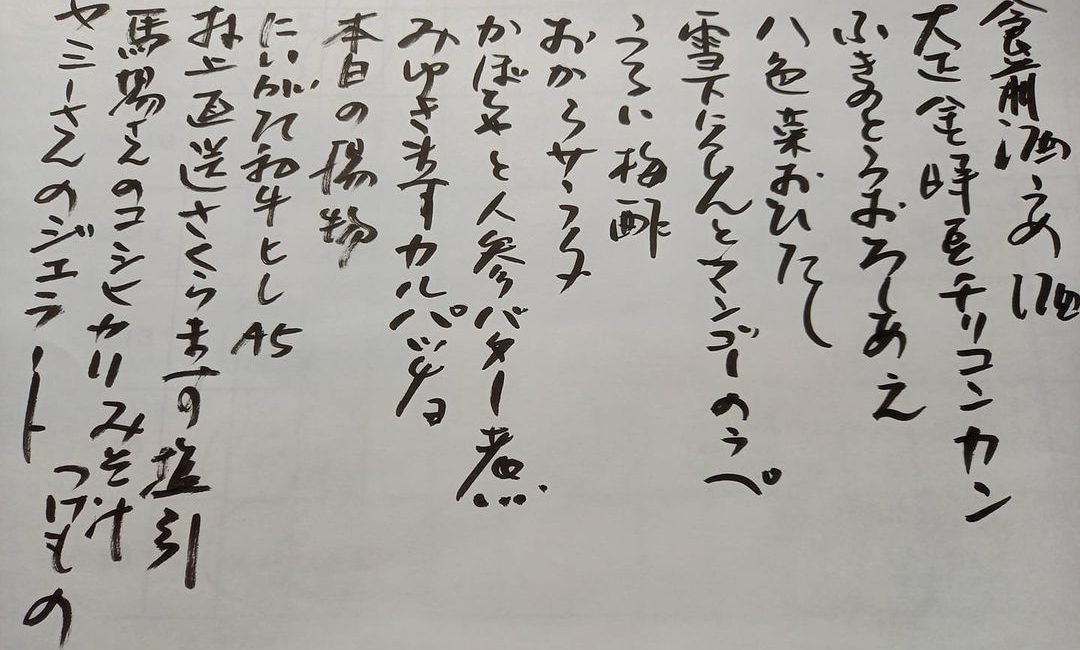 食前酒 うめ酒
大正金時豆チリコンカン
ふきのとうおろしあえ
八色菜おひたし
雪下にんじんとマンゴーのらぺ
うるい梅酢
おからサラダ
かぼちゃと人参バター煮
みゆきますカルパッチョ
本日の揚物
にいがた和牛ヒレA5
村上直送さくらます塩引
馬場さんのコシヒカリ みそ汁 つけもの
ヤミーさんのジェラート